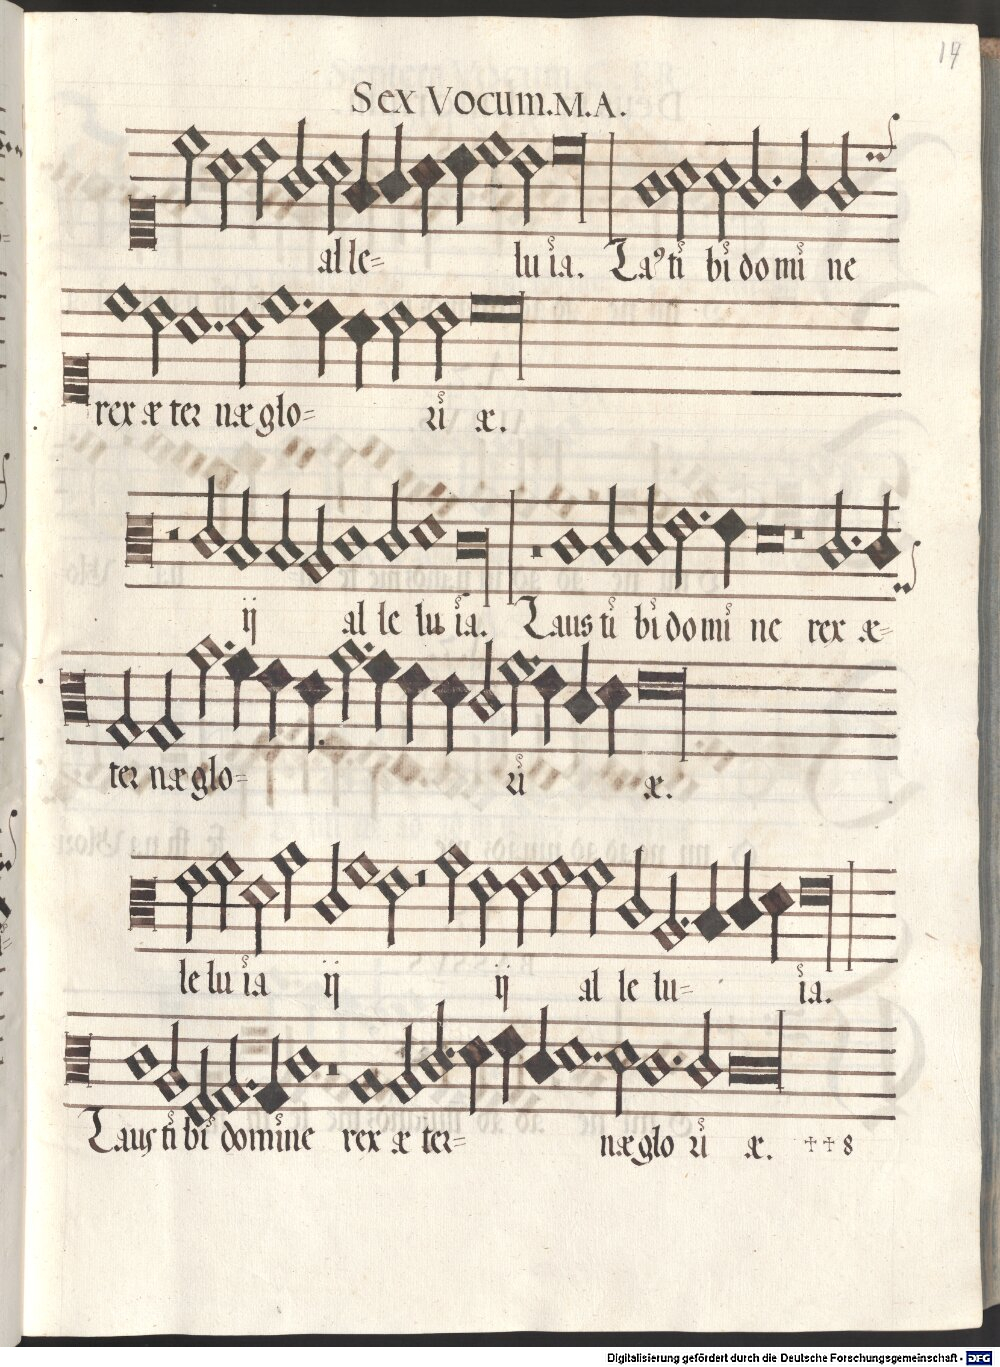 14
Sex Vocum. M. A.
al le= lu ia. La⁹ ti bi do mi ne
rex æ ter næ glo= ri æ.
ij al le lu ia. Laus ti bi do mi ne rex æ=
ter næ glo= ri æ.
le lu ia ij ij al le lu= ia.
Laus ti bi domine rex æ ter= næ glo ri æ. ++8
Digitalisierung gefördert durch die Deutsche Forschungsgemeinschaft - DFG